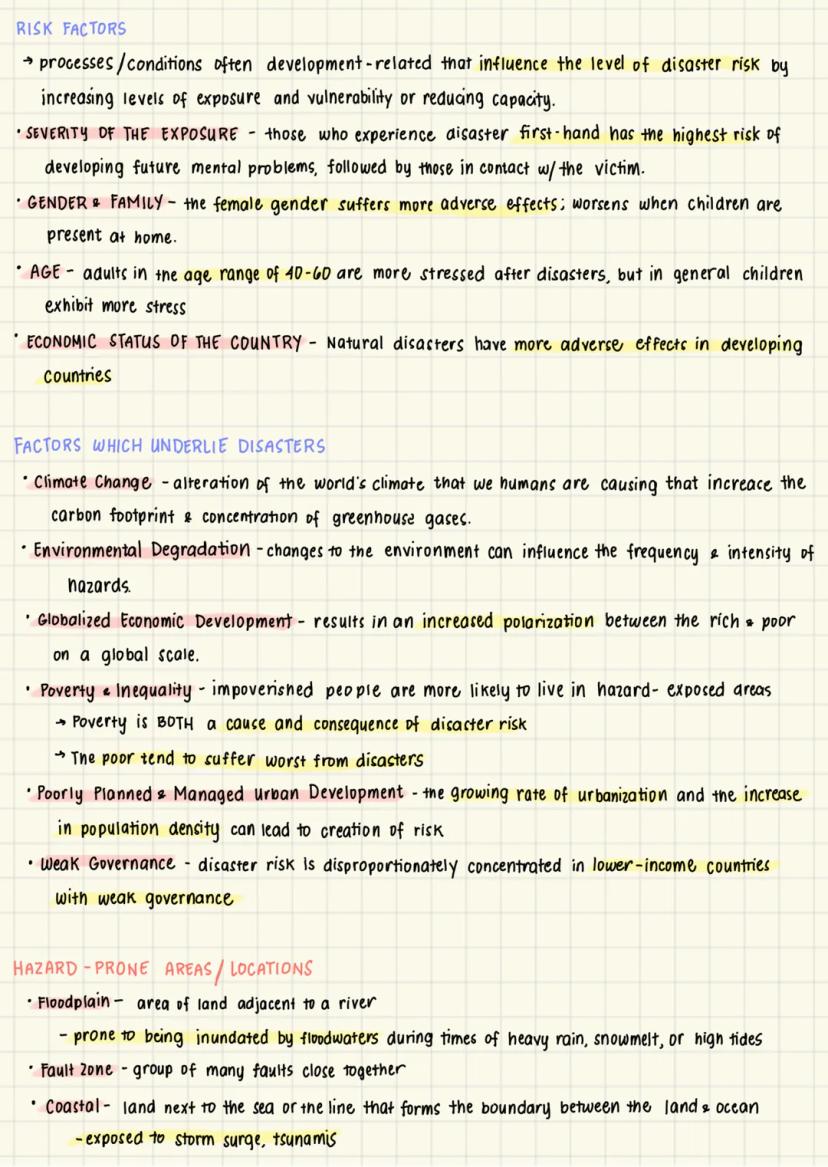 RISK FACTORS
→ processes/conditions often development-related that influence the level of disaster risk by
increasing levels of exposure and vulnerability or reducing capacity.
• SEVERITY OF THE EXPOSURE - those who experience disaster first-hand has the highest risk of
developing future mental problems, followed by those in contact w/ the victim.
• GENDER & FAMILY - the female gender suffers more adverse effects; worsens when children are
present at home.
• AGE - adults in the age range of 40-60 are more stressed after disasters, but in general children
exhibit more stress
• ECONOMIC STATUS OF THE COUNTRY - Natural disasters have more adverse effects in developing
countries
FACTORS WHICH UNDERLIE DISASTERS
• Climate Change - alteration of the world's climate that we humans are causing that increace the
carbon footprint & concentration of greenhouse gases.
• Environmental Degradation - changes to the environment can influence the frequency & intensity of
hazards.
• Globalized Economic Development - results in an increased polarization between the rich & poor
on a global scale.
• Poverty & Inequality - impoverished people are more likely to live in hazard-exposed areas
→ Poverty is BOTH a cause and consequence of disaster risk
→ The poor tend to suffer worst from disasters
• Poorly Planned & Managed Urban Development - the growing rate of urbanization and the increase
in population density can lead to creation of risk
• Weak Governance - disaster risk is disproportionately concentrated in lower-income countries
with weak governance
HAZARD-PRONE AREAS/LOCATIONS
• Floodplain - area of land adjacent to a river
- prone to being inundated by floodwaters during times of heavy rain, snowmelt, or high tides
• Fault Zone - group of many faults close together
• Coastal - land next to the sea or the line that forms the boundary between the land & ocean
- exposed to storm surge, tsunamis